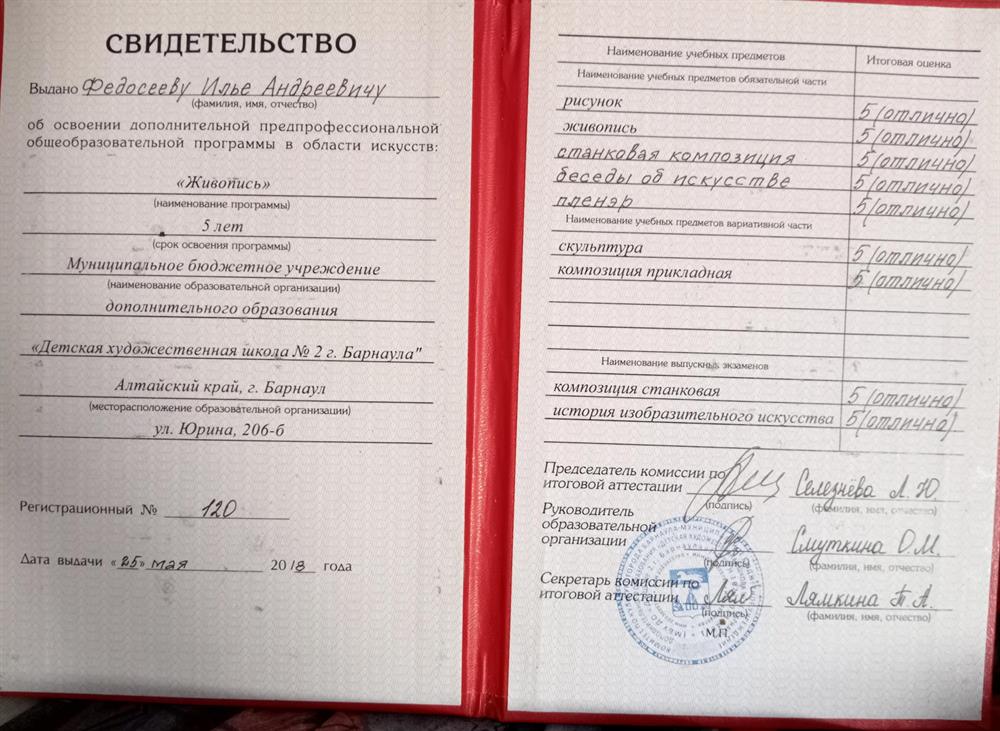 СВИДЕТЕЛЬСТВО
Выдано Федосееву Илье Андреевичу
(фамилия, имя, отчество)
об освоении дополнительной предпрофессиональной
общеобразовательной программы в области искусств:
«Живопись»
(наименование программы)
5 лет
(срок освоения программы)
Муниципальное бюджетное учреждение
(наименование образовательной организации)
дополнительного образования
«Детская художественная школа № 2 г. Барнаула"
Алтайский край, г. Барнаул
(месторасположение образовательной организации)
ул. Юрина, 206-б
Регистрационный № 120
Дата выдачи «25» мая 2018 года
Наименование учебных предметов Итоговая оценка
Наименование учебных предметов обязательной части
рисунок 5 (отлично)
живопись 5 (отлично)
станковая композиция 5 (отлично)
беседы об искусстве 5 (отлично)
пленэр 5 (отлично)
Наименование учебных предметов вариативной части
скульптура 5 (отлично)
композиция прикладная 5 (отлично)
Наименование выпускных экзаменов
композиция станковая 5 (отлично)
история изобразительного искусства 5 (отлично)
Председатель комиссии по
итоговой аттестации Селезнёва Л. Ю.
(подпись) (фамилия, имя, отчество)
Руководитель
образовательной
организации Смуткина О.М.
(подпись) (фамилия, имя, отчество)
Секретарь комиссии по
итоговой аттестации Лям Лямкина Т. А.
(подпись) (фамилия, имя, отчество)
М.П.